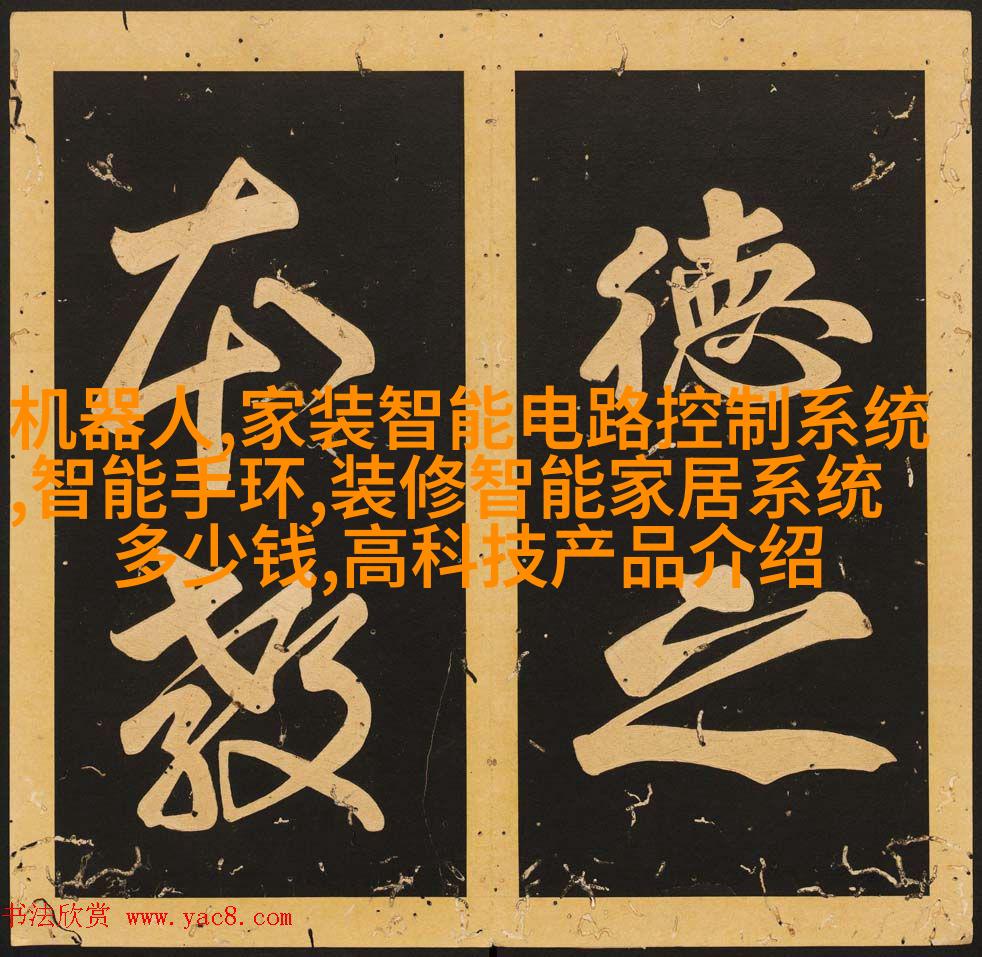 德之
本教
机器人,家装智能电路控制系统
,智能手环,装修智能家居系统
多少钱,高科技产品介绍
书法欣赏 www.yac8.com